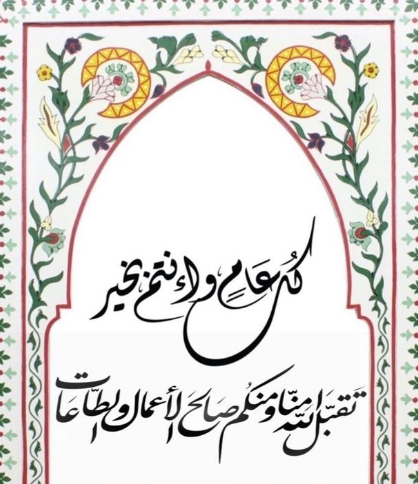 كُل عَامٍ وإنتم بخير
تَقبّل الله منّا ومنكم صَالحَ الأعمال والطّاعَات